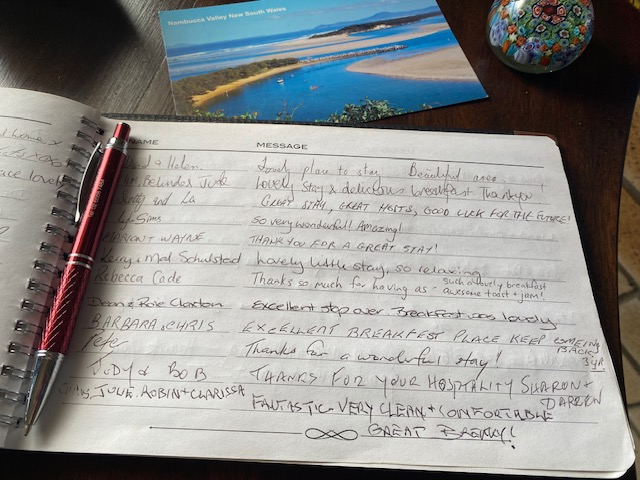 Nambucca Valley New South Wales
NAME MESSAGE
& Helen. Lovely place to stay Beautiful area
Belinda & Lovely Stay & delicious breakfast Thankyou
and La GREAT STAY, GREAT HOSTS, GOOD LUCK FOR THE FUTURE!
Sims So very wonderful! Amazing!
WAYNE THANK YOU FOR A GREAT STAY!
& Mal Schulstad Lovely little stay, so relaxing
Rebecca Cade Thanks so much for having us - such a lovely breakfast
awesome toast + jam!
Dean & Claxton Excellent stop over Breakfast was lovely
BARBARA & CHRIS EXCELLENT BREAKFEST PLACE KEEP COMEING
BACK
3 YR
Peter Thanks for a wonderful stay!
JUDY & BOB THANKS FOR YOUR HOSPITALITY SHARON +
DARREN
JULIE. ROBIN + CLARISSA FANTASTIC - VERY CLEAN + COMFORTABLE
GREAT BREAKY!